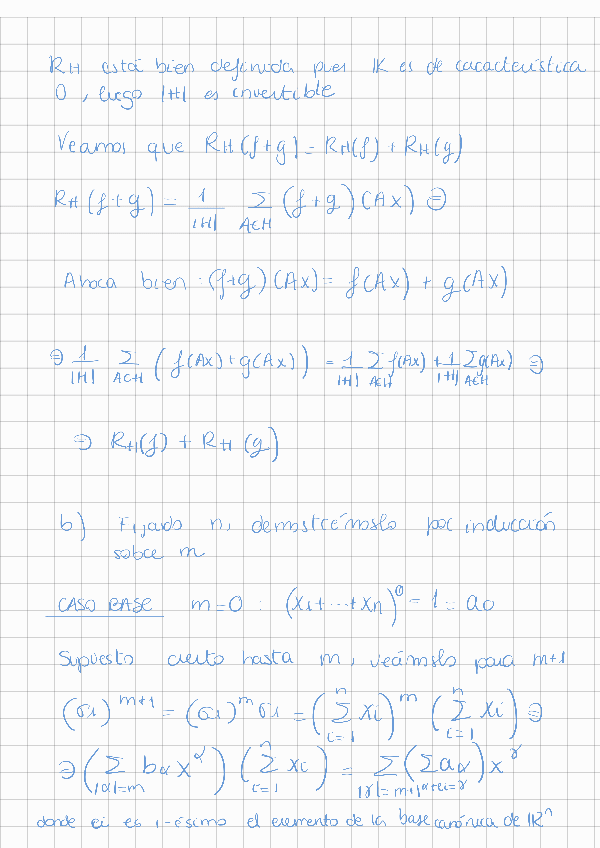 R_H está bien definida pues IK es de característica
0, luego |H| es invertible
Veamos que R_H(f+g) = R_H(f) + R_H(g)
R_H(f+g) = 1/|H| Σ_{A∈H} (f+g)(Ax) ⊜
Ahora bien (f+g)(Ax) = f(Ax) + g(Ax)
⊜ 1/|H| Σ_{A∈H} (f(Ax)+g(Ax)) = 1/|H| Σ_{A∈H} f(Ax) + 1/|H| Σ_{A∈H} g(Ax) ⊜
⊜ R_H(f) + R_H(g)
b) Fijado n, demostrémoslo por inducción
sobre m
CASO BASE m=0 : (x₁+···+xₙ)⁰ = 1 = a₀
Supuesto cierto hasta m, veámoslo para m+1
(σ₁)^{m+1} = (σ₁)^m σ₁ = (Σ_{i=1}^n xᵢ)^m (Σ_{i=1}^n xᵢ) ⊜
⊜ (Σ_{|α|=m} b_α x^α) (Σ_{i=1}^n xᵢ) = Σ_{|γ|=m+1} (Σ_{α+eᵢ=γ} a_α) x^γ
donde eᵢ es i-ésimo el elemento de la base canónica de IRⁿ